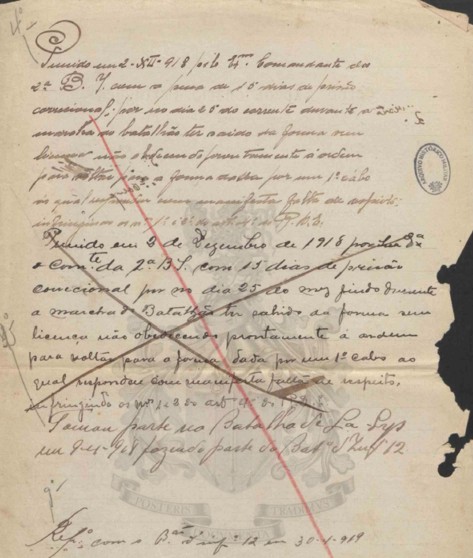 4º
Punido em 2-XII-918 pelo Exmo. Comandante da
2ª B. I. com a pena de 15 dias de prisão
correcional, por no dia 25 do corrente durante a
marcha do batalhão ter saido da forma sem
licença não obedecendo prontamente á ordem
para voltar para a forma dada por um 1º cabo
ao qual com manifesta falta de respeito,
infringindo os nos 1º
Punido em 2 de Dezembro de 1918
o Comte da 2ª B I. com 15 dias de prisão
correcional por no dia 25 do mez findo durante
a marcha do Batalhão ter sahido da forma sem
licença não obedecendo prontamente á ordem
para voltar para a forma dada por um 1º cabo ao
qual respondeu com manifesta falta de respeito,
infringindo os nos 1 e 3 do artº 4º do
Tomou parte na Batalha de La Lys
em 9-4-918 fazendo parte do Bat. d'Infª 12
POSTERIS TRADITUS
com o Bão d'infª 12 em 30-1-919